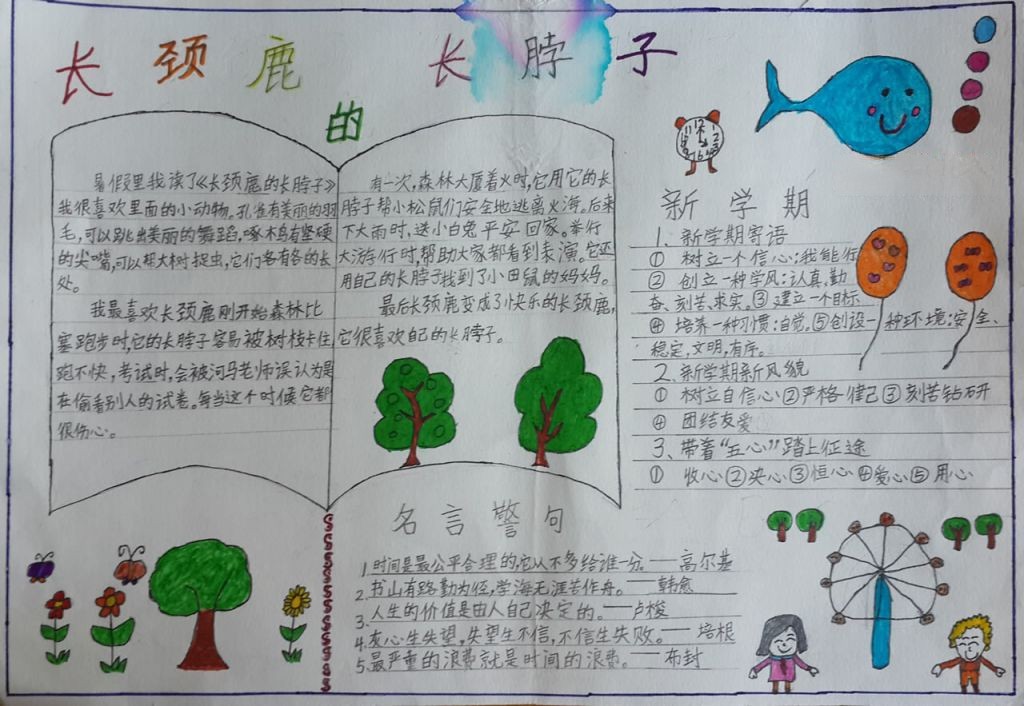 长颈鹿的长脖子
暑假里我读了《长颈鹿的长脖子》
我很喜欢里面的小动物。孔雀有美丽的羽
毛，可以跳出美丽的舞蹈，啄木鸟有坚硬
的尖嘴，可以帮大树捉虫，它们各有各的长
处。
我最喜欢长颈鹿刚开始森林比
塞跑步时，它的长脖子容易被树枝卡住，
跑不快，考试时，会被河马老师误认为是
在偷看别人的试卷。每当这个时候它都
很伤心。
有一次，森林大厦着火时，它用它的长
脖子帮小松鼠们安全地逃离火海。后来
下大雨时，送小白兔平安回家。举行
大游行时，帮助大家都看到表演。它还
用自己的长脖子找到了小田鼠的妈妈。
最后长颈鹿变成了快乐的长颈鹿，
它很喜欢自己的长脖子。
新学期
1、新学期寄语
① 树立一个信心：我能行
② 创立一种学风：认真、勤
奋、刻苦、求实。③ 建立一个目标
④ 培养一种习惯：自觉。⑤创设一种环境：安全、
稳定，文明，有序。
2、新学期新风貌
① 树立自信心②严格律己③刻苦钻研
④ 团结友爱
3、带着“五心”踏上征途
① 收心②决心③恒心④爱心⑤用心
名言警句
1.时间是最公平合理的，它从不多给谁一分。——高尔基
2.书山有路勤为径，学海无涯苦作舟。——韩愈
3.人生的价值是由人自己决定的。——卢梭
4.灰心生失望，失望生不信，不信生失败。——培根
5.最严重的浪费就是时间的浪费。——布封